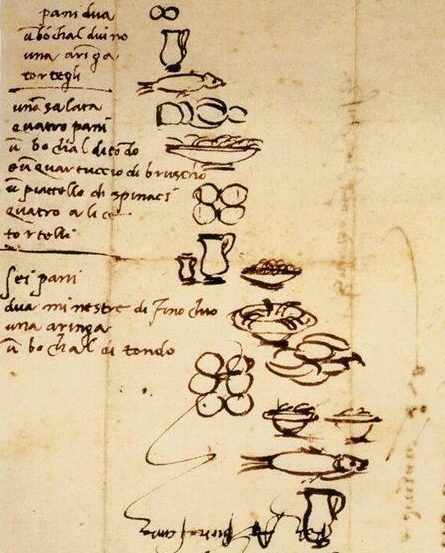 pani dua
ũ bochal di vino
una aringa
tortegli
una salata
quatro pani
ũ bochal di tõdo
e ũ quartuccio di bruscho
ũ piattello di spinaci
quatro alice
tortelli
sei pani
dua minestre di finochio
una aringa
ũ bochal di tondo